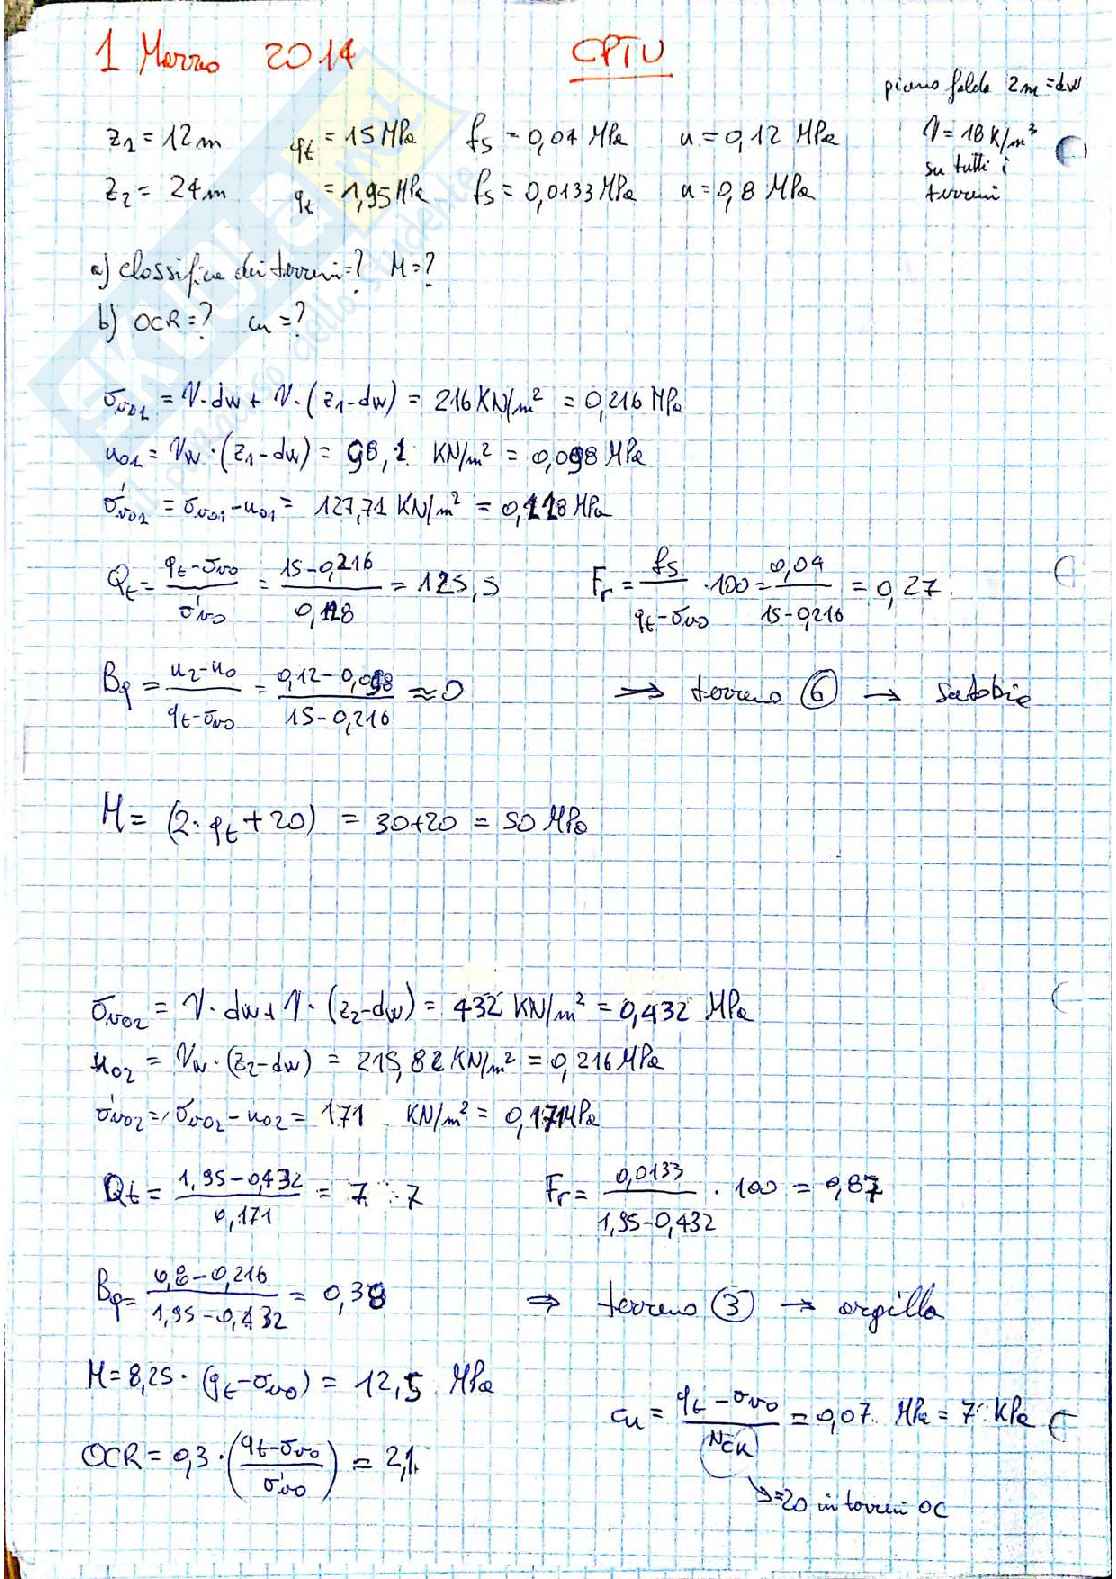 1 Marzo 2014 CPTU
piano falda 2m = dw
z₁ = 12 m qt = 15 MPa fs = 0,04 MPa u = 0,12 MPa γ = 18 K/m³
su tutti i
terreni
z₂ = 24 m qt = 1,95 MPa fs = 0,0133 MPa u = 0,8 MPa
a) classifica dei terreni = ? M = ?
b) OCR = ? cu = ?
σvo1 = γ · dw + γ · (z₁ - dw) = 216 KN/m² = 0,216 MPa
uo1 = γw · (z₁ - dw) = 98,1 KN/m² = 0,098 MPa
σ'vo1 = σvo1 - uo1 = 127,71 KN/m² = 0,118 MPa
Qt = (qt - σvo)/σ'vo = (15 - 0,216)/0,118 = 125,5 Fr = fs/(qt - σvo) · 100 = 0,04/(15 - 0,216) = 0,27
Bq = (u₂ - u₀)/(qt - σvo) = (0,12 - 0,098)/(15 - 0,216) ≈ 0 ⇒ terreno 6 → sabbia
M = (2 · qt + 20) = 30 + 20 = 50 MPa
σvo2 = γ · dw + γ · (z₂ - dw) = 432 KN/m² = 0,432 MPa
uo2 = γw · (z₂ - dw) = 215,82 KN/m² = 0,216 MPa
σ'vo2 = σvo2 - uo2 = 171 KN/m² = 0,171 MPa
Qt = (1,95 - 0,432)/0,171 = 7 7 Fr = 0,0133/(1,95 - 0,432) · 100 = 0,87
Bq = (0,8 - 0,216)/(1,95 - 0,432) = 0,38 ⇒ terreno 3 → argilla
M = 8,25 · (qt - σvo) = 12,5 MPa
cu = (qt - σvo)/Nck = 0,07 MPa = 7 KPa
OCR = 0,3 · ((qt - σvo)/σ'vo) = 2,1
→ = 20 in terreni OC